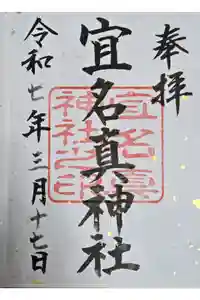 奉拝
宜名真神社
宜名真神社之印
令和七年三月十七日